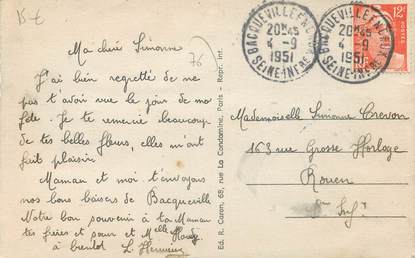 15 €
76
Ma chère Simonne
J'ai bien regretté de ne
pas t'avoir vue le jour de ma
fête. Je te remercie beaucoup
de tes belles fleurs, elles m'ont
fait plaisir.
Maman et moi t'envoyons
nos bons baisers de Bacqueville
Notre bon souvenir à ta Maman
tes frères et sœur et Melle
à bientôt L.
Ed. R. Caron, 68, rue La Condamine, Paris - Repr. int.
BACQUEVILLE EN CAUX
20H45
4 -9
1951
SEINE-INFRE
BACQUEVILLE EN CAUX
20H45
4 -9
1951
SEINE-INFRE
12F
Mademoiselle Simone Crevon
163 rue Grosse Horloge
Rouen